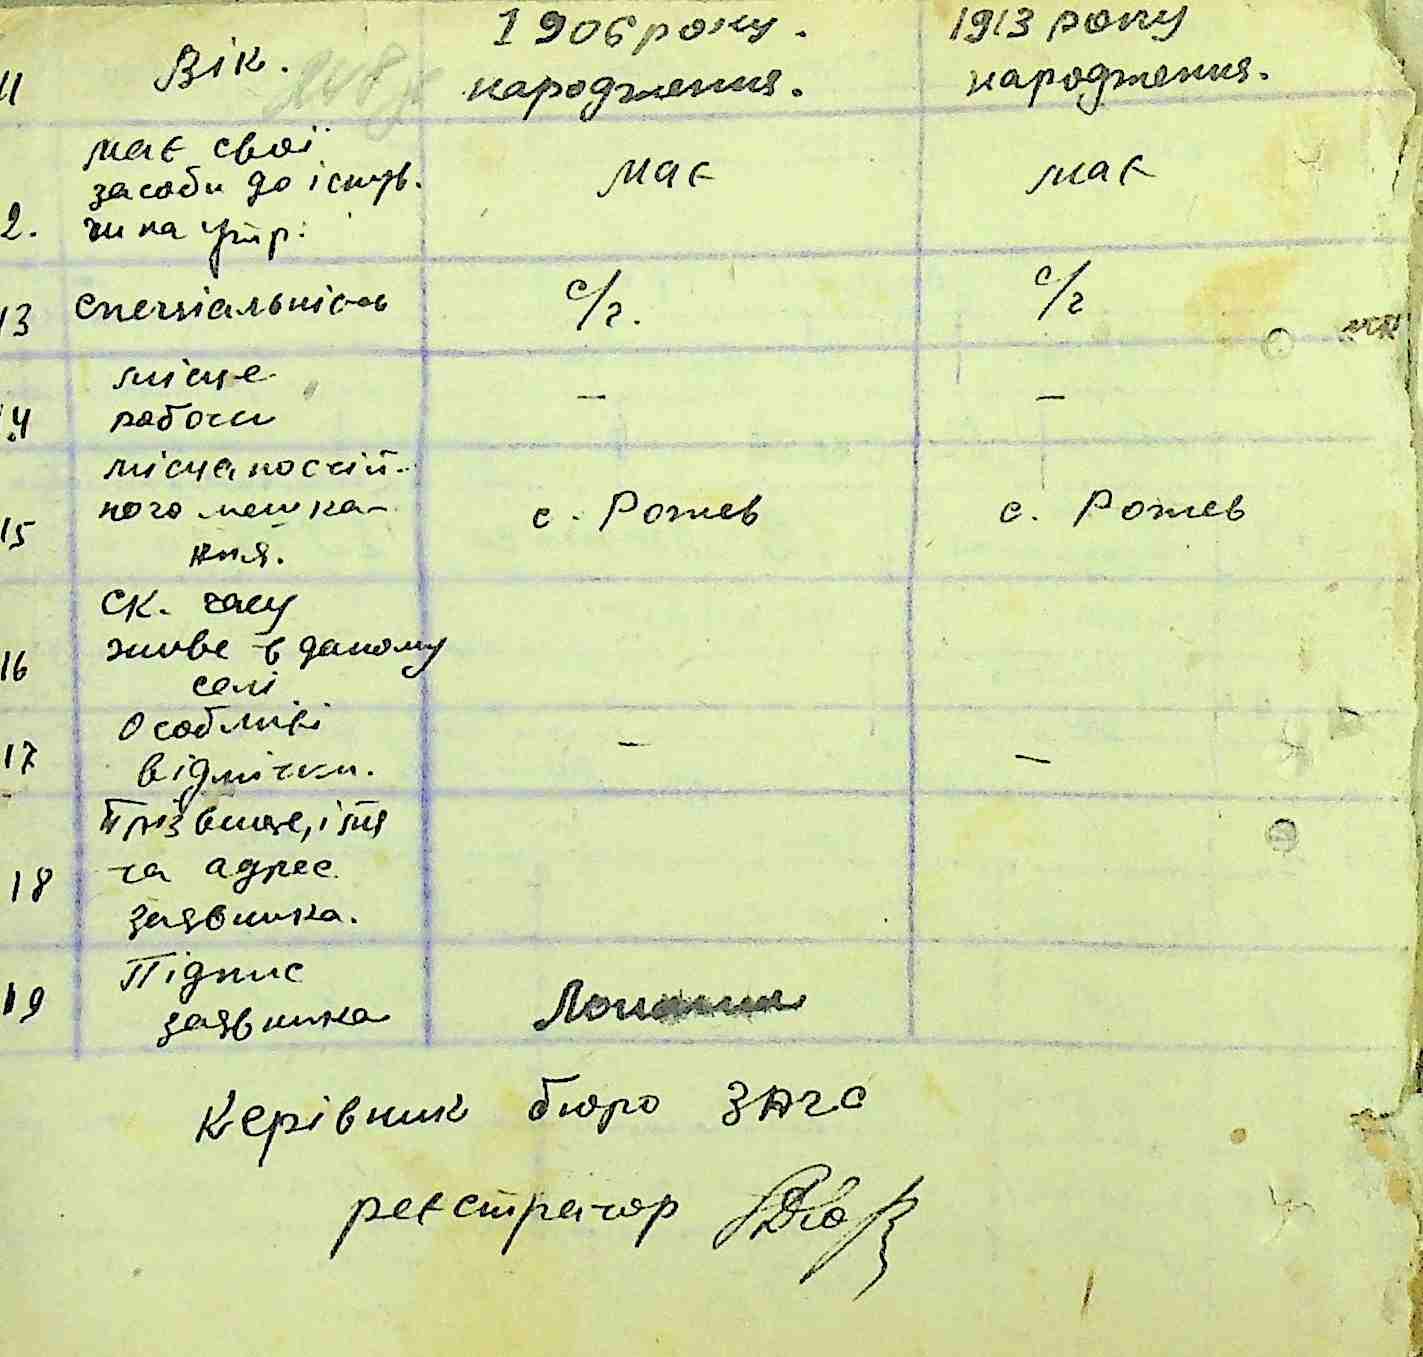 11 Вік. 1906 року. 1913 року
народження. народження.
має свої
засоби до існув. має має
12. чи на утр.
13 спеціальність с/г. с/г
місце
14 роботи – –
місце постій-
15 ного мешка- с. Рожев с. Рожев
ння.
ск. часу
живе в даному
16 селі
Особливі – –
17 відмітки.
Прізвище, імя
18 та адрес
заявника.
Підпис
19 заявника
Керівник бюро ЗАГС
реєстратор